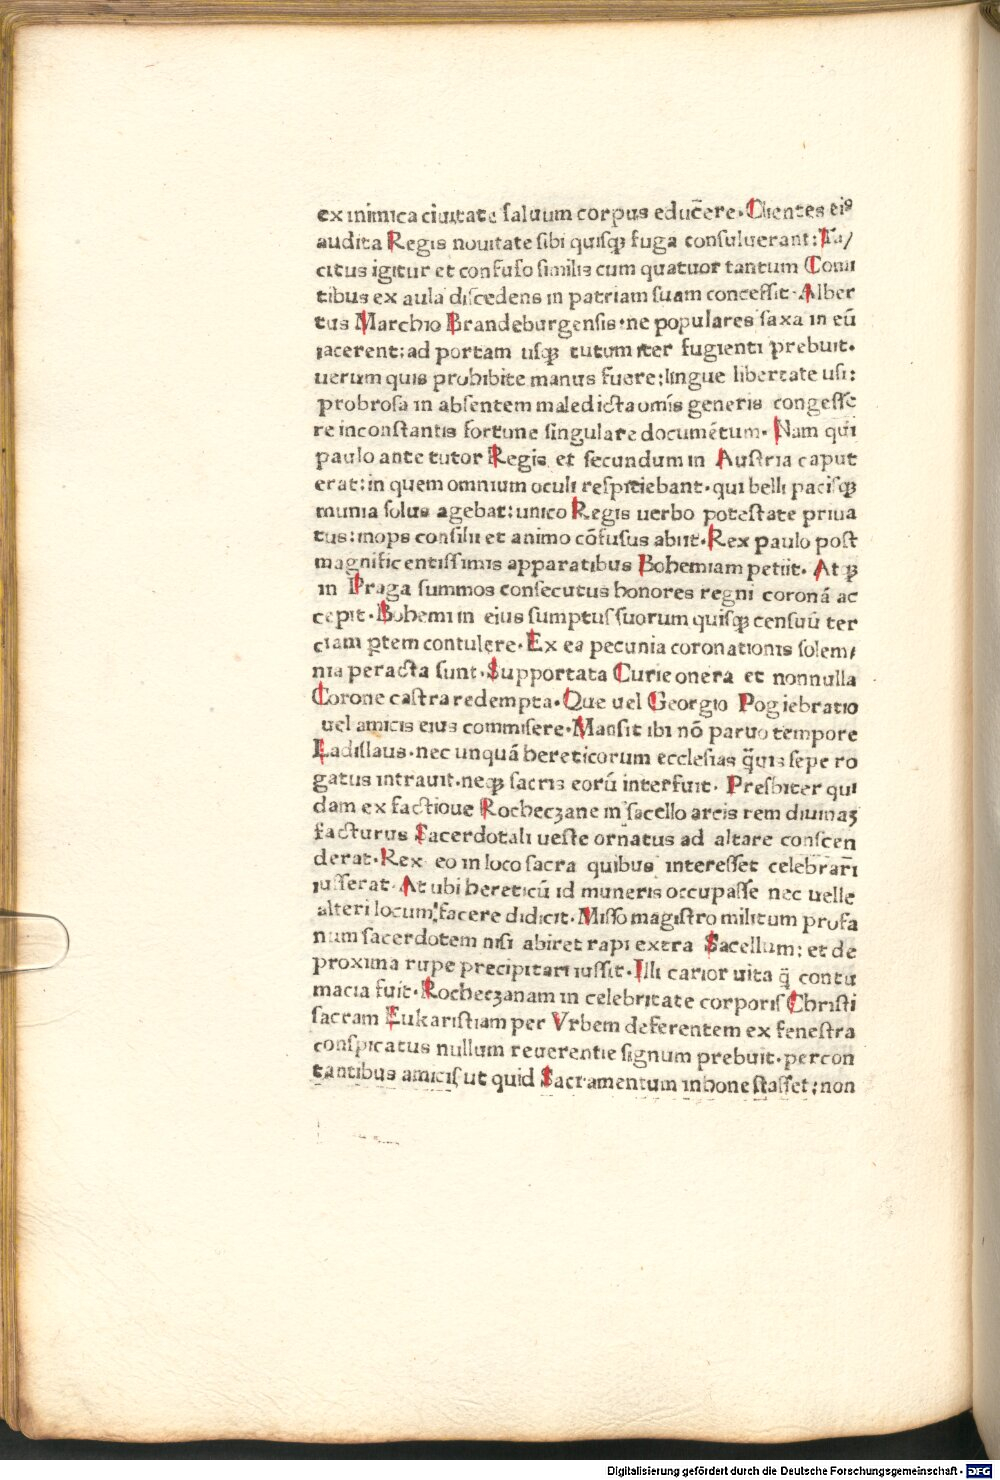 ex inimica ciuitate saluum corpus educ̄ere. Clientes ei⁹
audita Regis nouitate sibi quisqꝫ fuga consuluerant: Ta/
citus igitur et confuso similis cum quatuor tantum Comi
tibus ex aula discedens in patriam suam concessit. Alber
tus Marchio Brandeburgensis. ne populares saxa in eū
iacerent: ad portam usqꝫ tutum iter fugienti prebuit.
uerum quis prohibite manus fuere: lingue libertate usi:
probrosa in absentem maledicta omīs generis congesse
re inconstantis fortune singulare documētum. Nam qui
paulo ante tutor Regis et secundum in Austria caput
erat: in quem omnium oculi respiciebant. qui belli pacisqꝫ
munia solus agebat: unico Regis uerbo potestate priua
tus: inops consilii et animo cōfusus abiit. Rex paulo post
magnificentissimis apparatibus Bohemiam petiit. Atqꝫ
in Praga summos consecutus honores regni coronā ac
cepit. Bohemi in eius sumptus suorum quisqꝫ censuū ter
ciam ꝑtem contulere. Ex ea pecunia coronationis solem/
nia peracta sunt. Supportata Curie onera et nonnulla
Corone castra redempta. Que uel Georgio Pogiebratio
uel amicis eius commisere. Mansit ibi nō paruo tempore
Ladislaus. nec unquā hereticorum ecclesias q̄uis sepe ro
gatus intrauit. neqꝫ sacris eorū interfuit. Presbiter qui
dam ex factioue Rocheczane in sacello arcis rem diuinaꝫ
facturus Sacerdotali ueste ornatus ad altare conscen
derat. Rex eo in loco sacra quibus interesset celebrari
iusserat. At ubi hereticū id muneris occupasse nec uelle
alteri locum facere didicit. Misso magistro militum profa
num sacerdotem nisi abiret rapi extra Sacellum: et de
proxima rupe precipitari iussit. Illi carior uita q̄ contu
macia fuit. Rocheczanam in celebritate corporis Christi
sacram Eukaristiam per Vrbem deferentem ex fenestra
conspicatus nullum reuerentie signum prebuit. percon
tantibus amicis ut quid Sacramentum inhonestasset: non
Digitalisierung gefördert durch die Deutsche Forschungsgemeinschaft - DFG